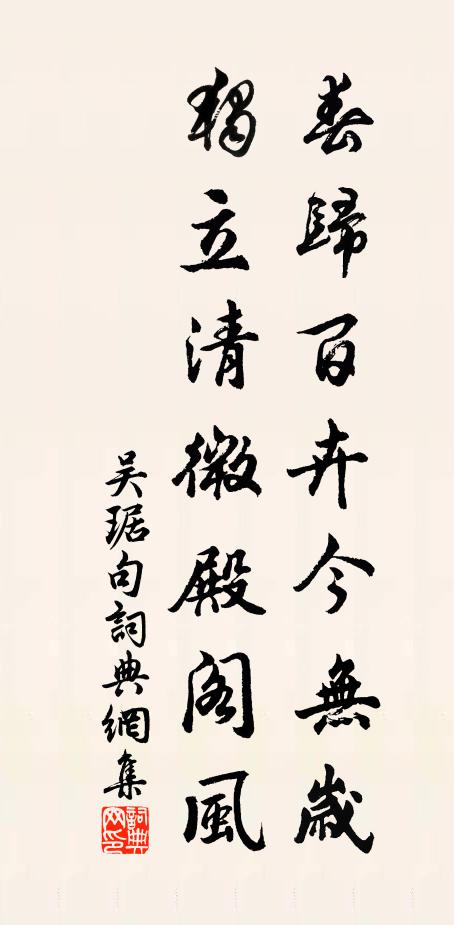 春歸百卉今無幾
獨立清微殿閣風
吴琚句詞典網集
詞典网印